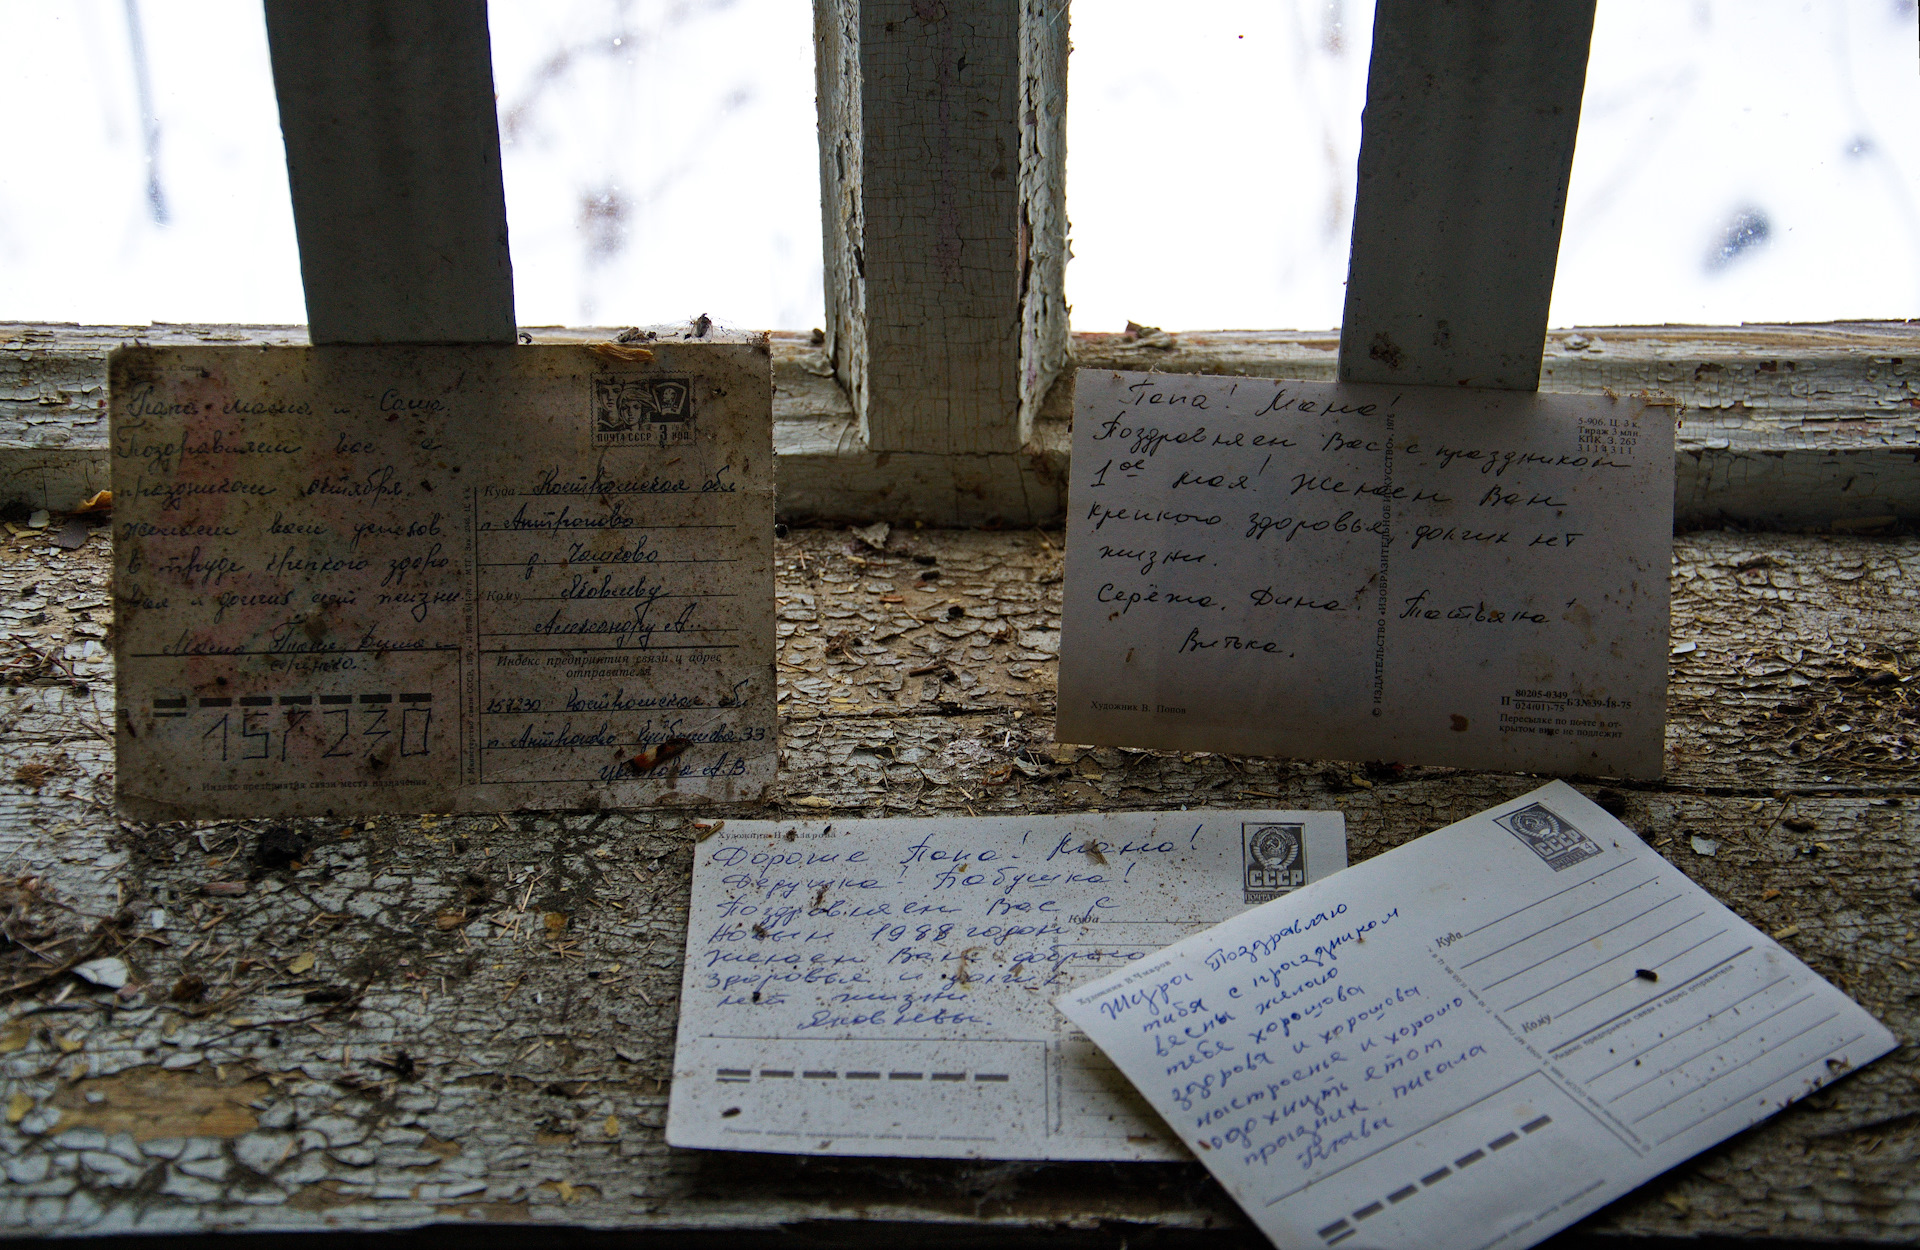 Папа мама и Саша.
Поздравляем вас с
праздником октября.
желаем вам успехов
в труде, крепкого здоро
вья и долгих лет жизни
Маша, Таня,
Серёжа.
ПОЧТА СССР 3 КОП
Куда Костромская обл
п. Антропово
д.
Кому Яковлеву
Александру А.
Индекс предприятия связи и адрес
отправителя
157230 Костромская обл
п. Антропово Куйбышева 33
А.В.
157230
Индекс предприятия связи места назначения
Папа! Мама!
Поздравляем Вас с праздником
1ое мая! Желаем Вам
крепкого здоровья долгих лет
жизни.
Серёжа. Дина! Татьяна!
Витька.
Художник В. Попов
© ИЗДАТЕЛЬСТВО «ИЗОБРАЗИТЕЛЬНОЕ ИСКУССТВО». 1976
5-906. Ц. 3 к.
Тираж 3 млн.
КПК. З. 263
3114311
П 80205-0349 / 024(01)-75 БЗ№39-18-75
Пересылке по почте в от-
крытом виде не подлежит
Художник Н.
Дорогие Папа! Мама!
Дедушка! Бабушка!
Поздравляем Вас с
Новым 1988 годом
Желаем Вам доброго
здоровья и долгих
лет жизни
Яковлевы.
СССР
Куда
Художник В. Чмаров
Шура Поздравляю
тибя с праздником
весны желаю
тебе хорошова
здоровя и хорошова
настроенья и хорошо
одохнуть етот
праздник. писала
Клава
СССР
4
Куда
Кому
Индекс предприятия связи и адрес отправителя